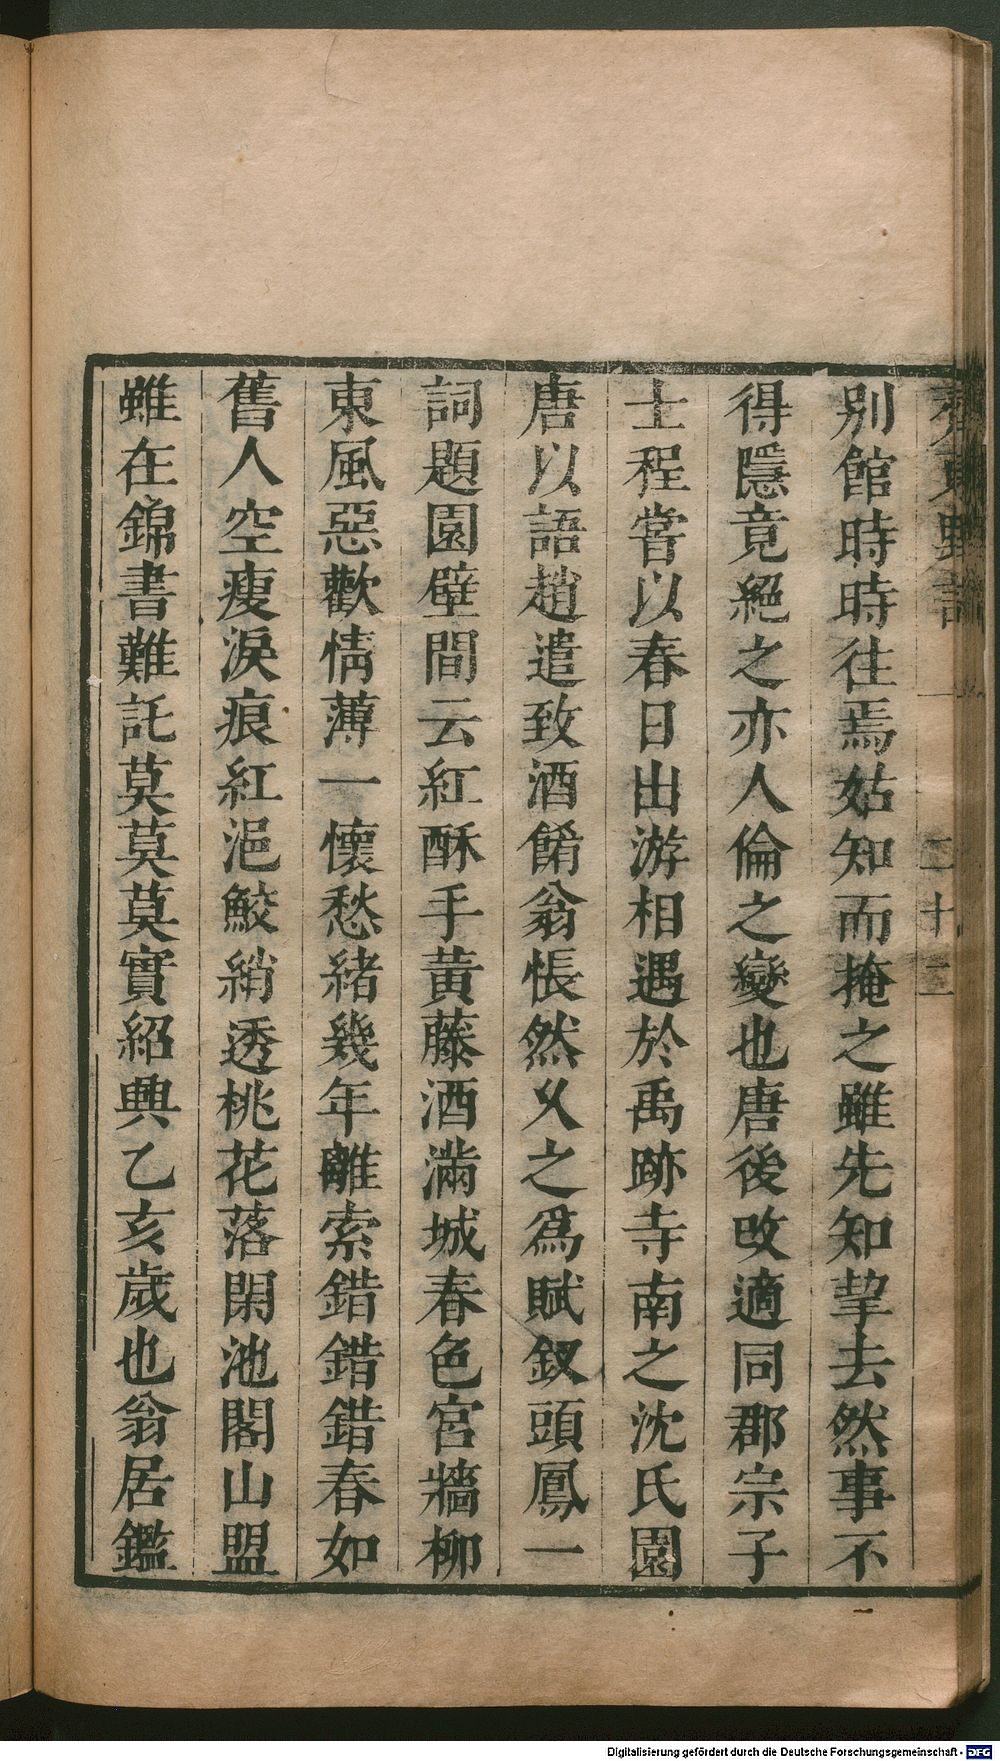 齊東野語 一 二十二
別館時時往焉姑知而掩之雖先知挈去然事不
得隱竟絕之亦人倫之變也唐後改適同郡宗子
士程嘗以春日出游相遇於禹跡寺南之沈氏園
唐以語趙遣致酒餚翁悵然久之爲賦釵頭鳳一
詞題園壁間云紅酥手黃藤酒滿城春色宮牆柳
東風惡歡情薄一懷愁緒幾年離索錯錯錯春如
舊人空瘦淚痕紅浥鮫綃透桃花落閑池閣山盟
雖在錦書難託莫莫莫實紹興乙亥歲也翁居鑑
Digitalisierung gefördert durch die Deutsche Forschungsgemeinschaft - DFG